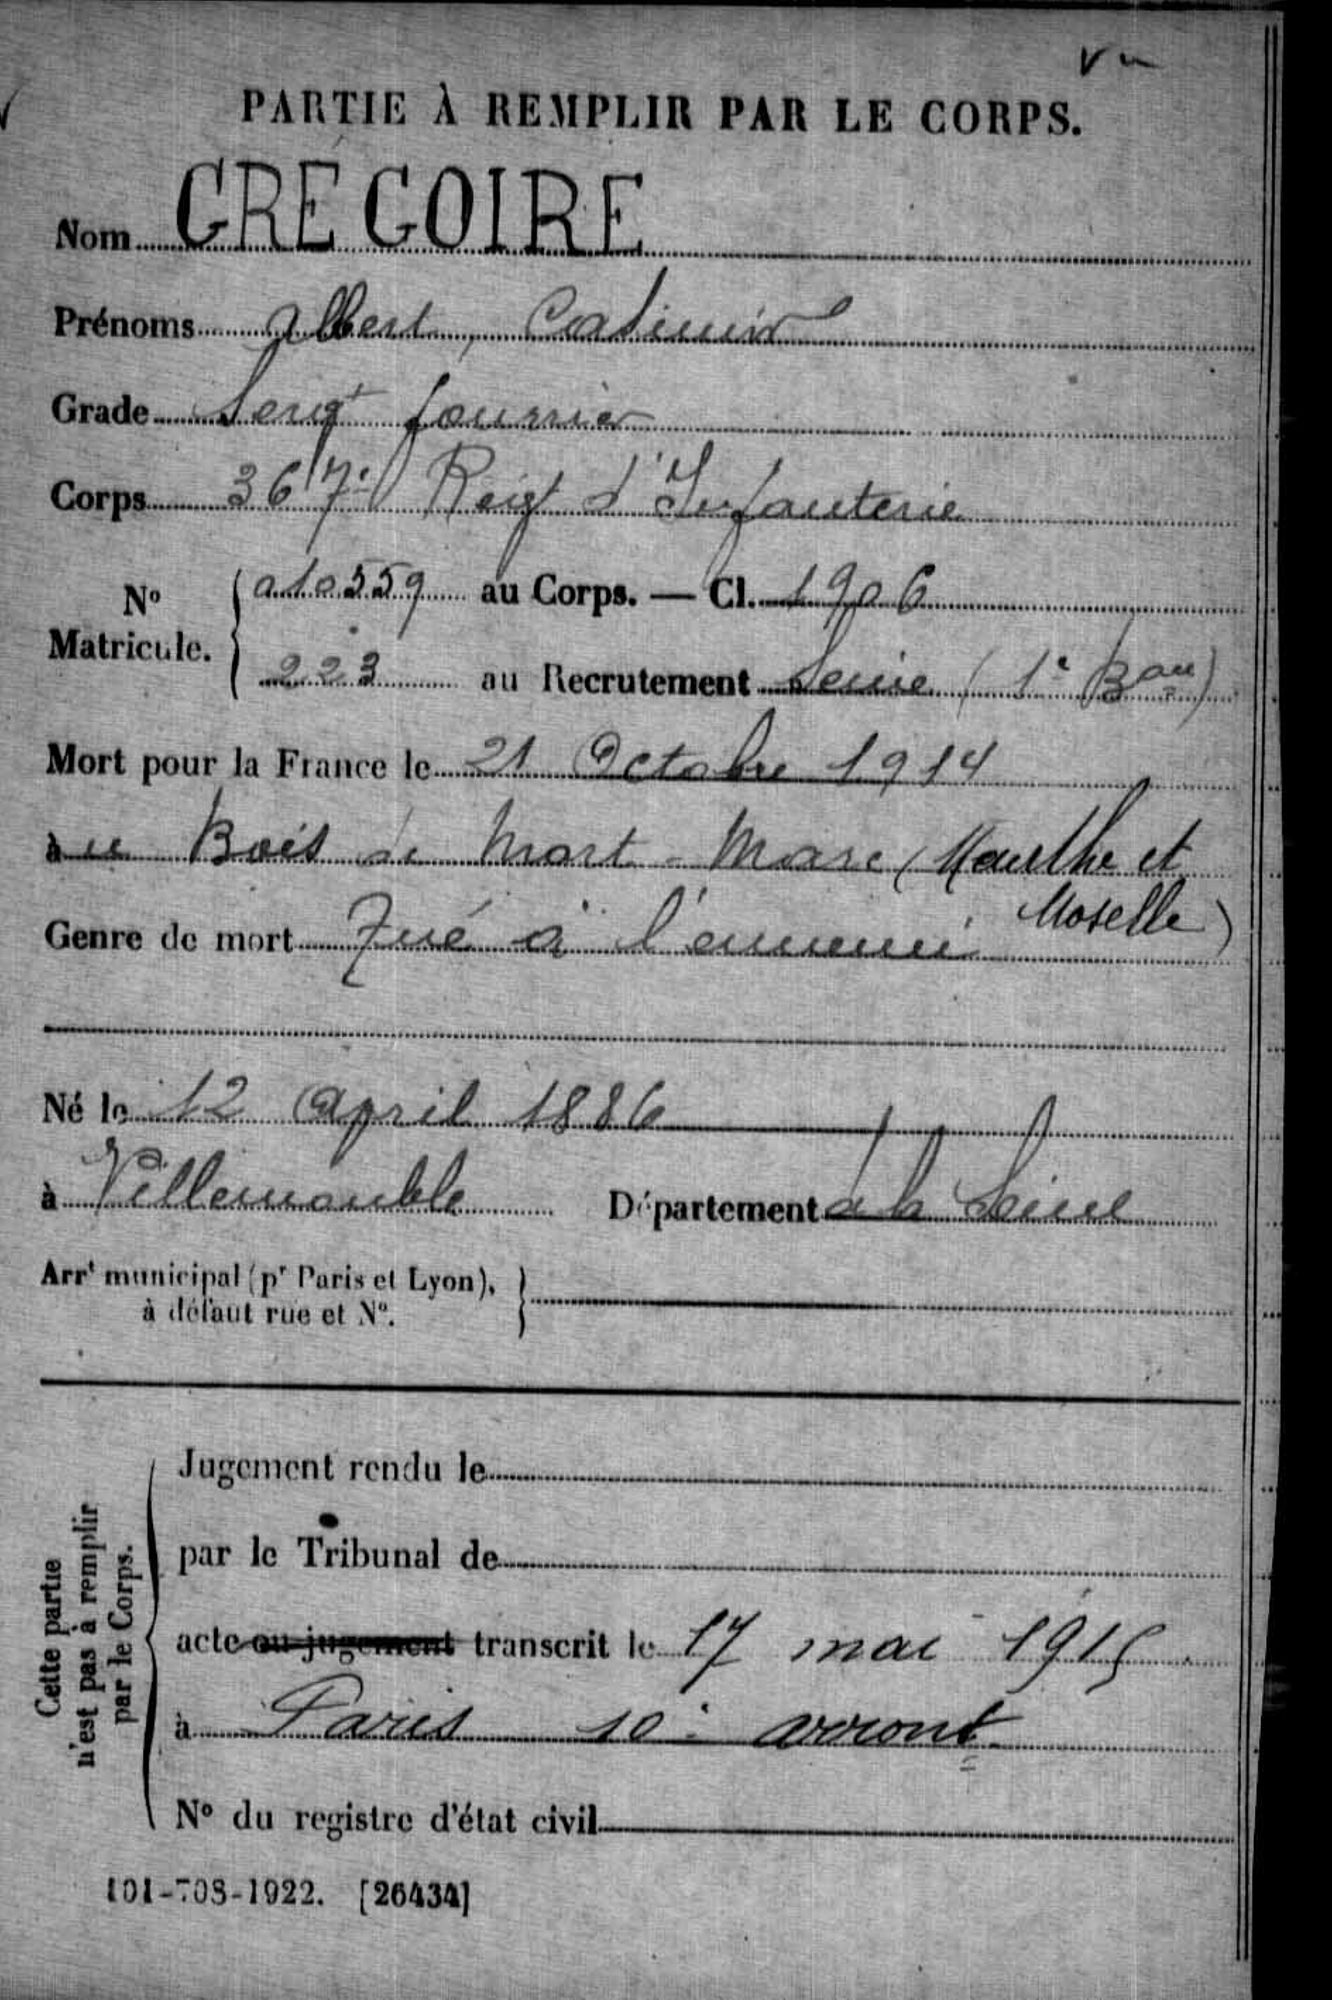 Vu
PARTIE À REMPLIR PAR LE CORPS.
Nom GRÉGOIRE
Prénoms Albert, Casimir
Grade Sergt fourrier
Corps 367e Reigt d'Infanterie
No Matricule. { 010559 au Corps. — Cl. 1906
223 au Recrutement Seine (1e Bau)
Mort pour la France le 21 Octobre 1914
au Bois de Mort-Mare (Meurthe et
Moselle)
Genre de mort Tué à l'ennemi
Né le 12 April 1886
à Villemomble Département de la Seine
Arrt municipal (pr Paris et Lyon),
à défaut rue et No.
Cette partie
n'est pas à remplir
par le Corps.
Jugement rendu le
par le Tribunal de
acte ou jugement transcrit le 17 mai 1915.
à Paris 10e arront
No du registre d'état civil
101-708-1922. [26434]